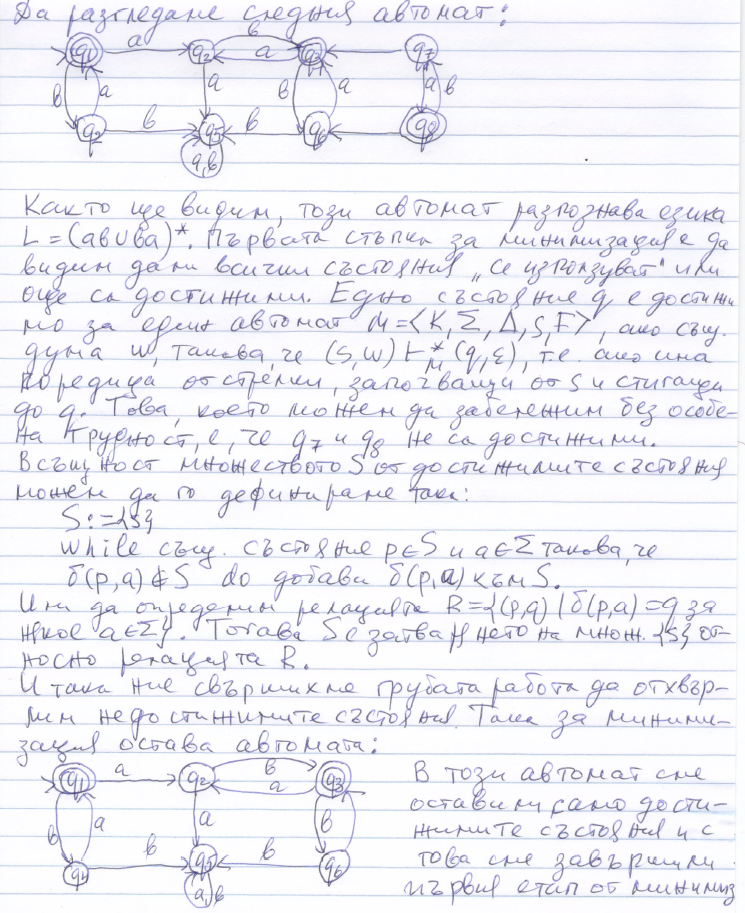 Да разгледаме следния автомат:
q1 a q2 b a q3 q7
b a a b a a b
q4 b q5 b q6 q8
a,b
Както ще видим, този автомат разпознава езика
L = (ab∪ba)*. Първата стъпка за минимизация е да
видим дали всички състояния „се използуват" или
още са достижими. Едно състояние q е достижи-
мо за един автомат M=<K,Σ,Δ,s,F>, ако същ.
дума w, такова, че (s,w)⊢*M (q,ε), т.е. ако има
поредица от стрелки, започващи от s и стигащи
до q. Това, което можем да забележим без особе-
на трудност, е, че q7 и q8 не са достижими.
В същност множеството S от достижимите състояния
можем да го дефинираме така:
S:={s}
while същ. състояние p∈S и a∈Σ такова, че
δ(p,a)∉S do добави δ(p,a) към S.
Или да определим релацията R={(p,q)|δ(p,a)=q за
някое a∈Σ}. Тогава S е затварянето на множ. {s} от-
носно релацията R.
И така ние свършихме грубата работа да отхвър-
лим недостижимите състояния. Така за миними-
зация остава автомата:
q1 a q2 b a q3
b a a b
q4 b q5 b q6
a,b
В този автомат сме
оставили само дости-
жимите състояния и с
това сме завършили
първия етап от миними